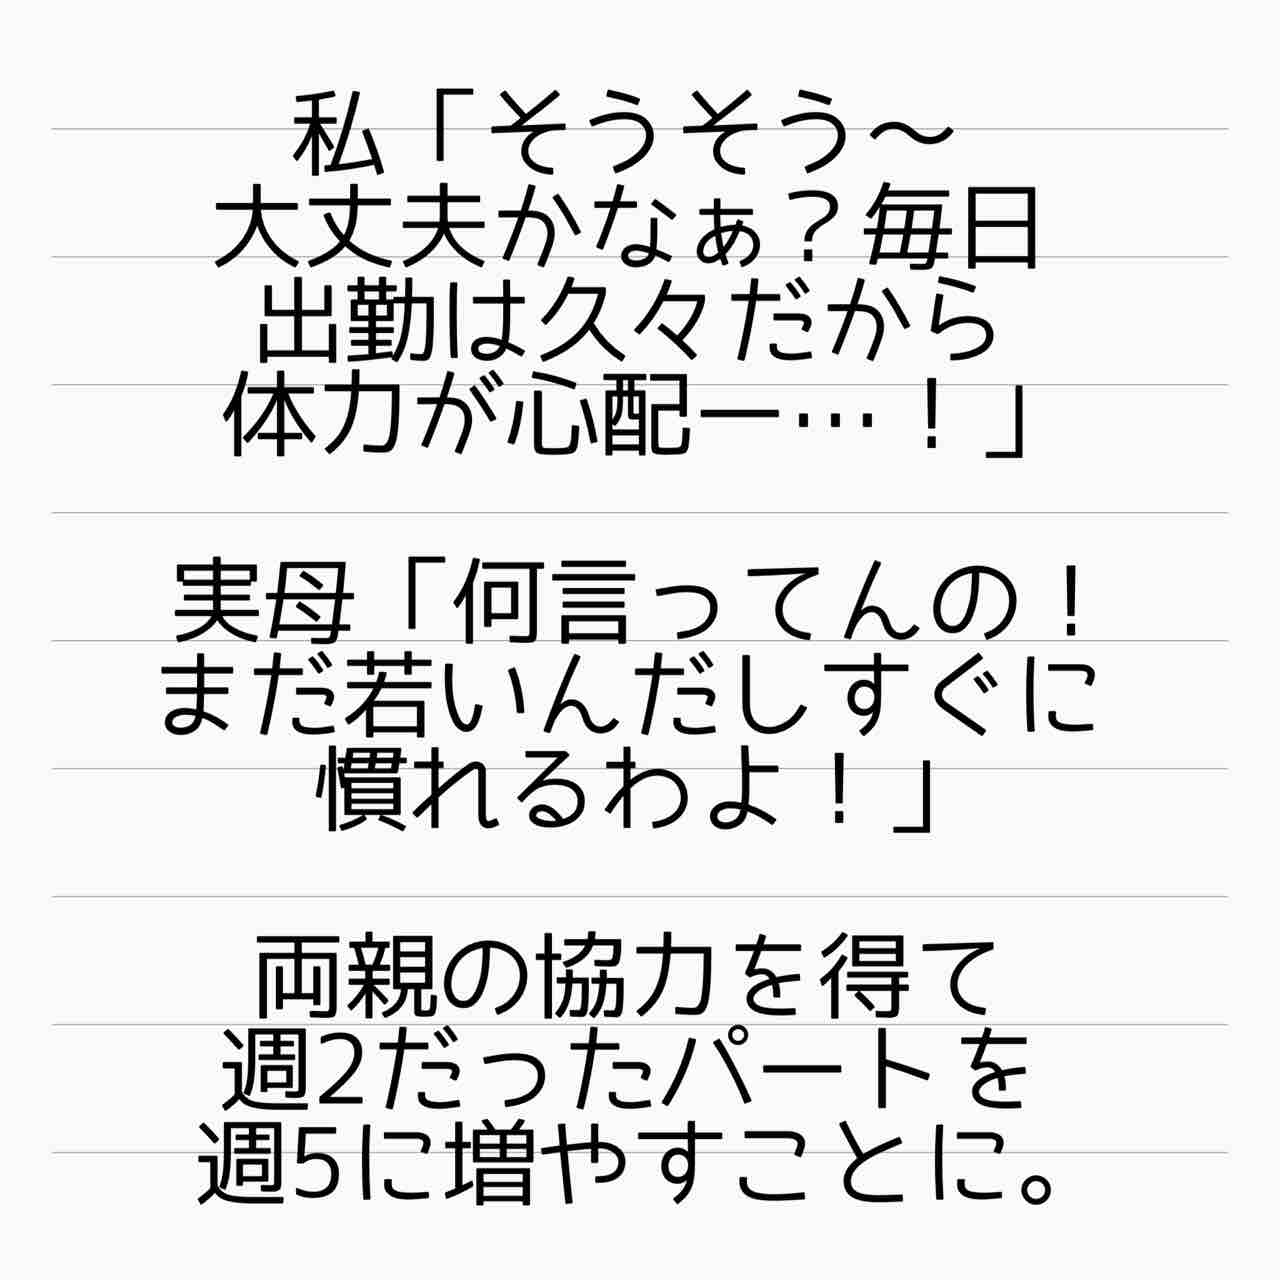 私「そうそう〜
大丈夫かなぁ？毎日
出勤は久々だから
体力が心配ー…！」
実母「何言ってんの！
まだ若いんだしすぐに
慣れるわよ！」
両親の協力を得て
週2だったパートを
週5に増やすことに。